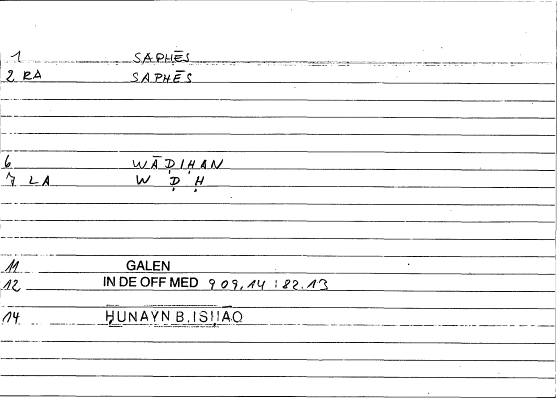 1 SAPHĒS
2 RA SAPHĒS
6 WĀḌIḤAN
7 LA W Ḍ Ḥ
11 GALEN
12 IN DE OFF MED 909,14 : 82.13
14 ḤUNAYN B. ISḤĀQ